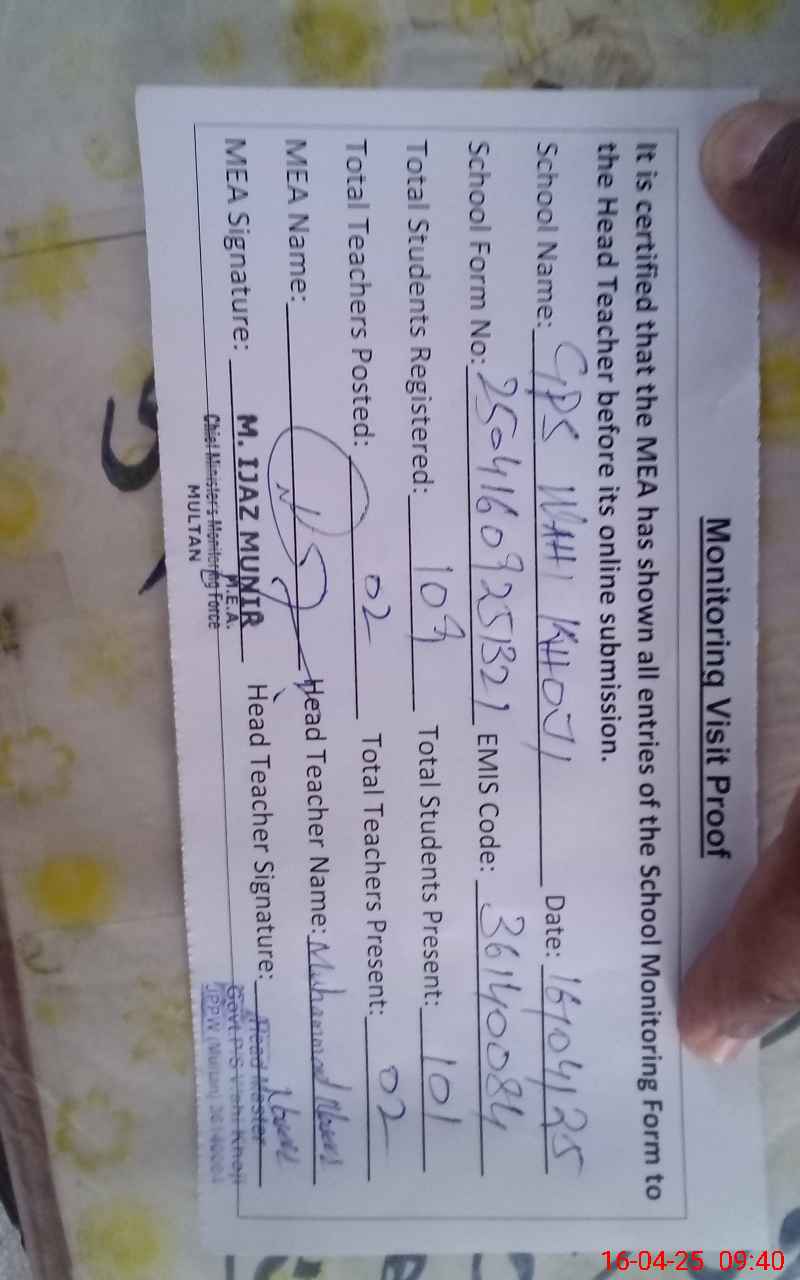 Monitoring Visit Proof
It is certified that the MEA has shown all entries of the School Monitoring Form to
the Head Teacher before its online submission.
School Name: GPS WAHI KHOJI Date: 16/04/25
School Form No: 25041609251321 EMIS Code: 36140084
Total Students Registered: 109 Total Students Present: 101
Total Teachers Posted: 02 Total Teachers Present: 02
MEA Name: Head Teacher Name: Muhammad
MEA Signature: M. IJAZ MUNIR Head Teacher Signature:
M.E.A.
Chief Minister's Monitoring Force
MULTAN
Head Master
Govt. P/S Wahi Khoji
JPPW (Multan) 36140084
16-04-25 09:40